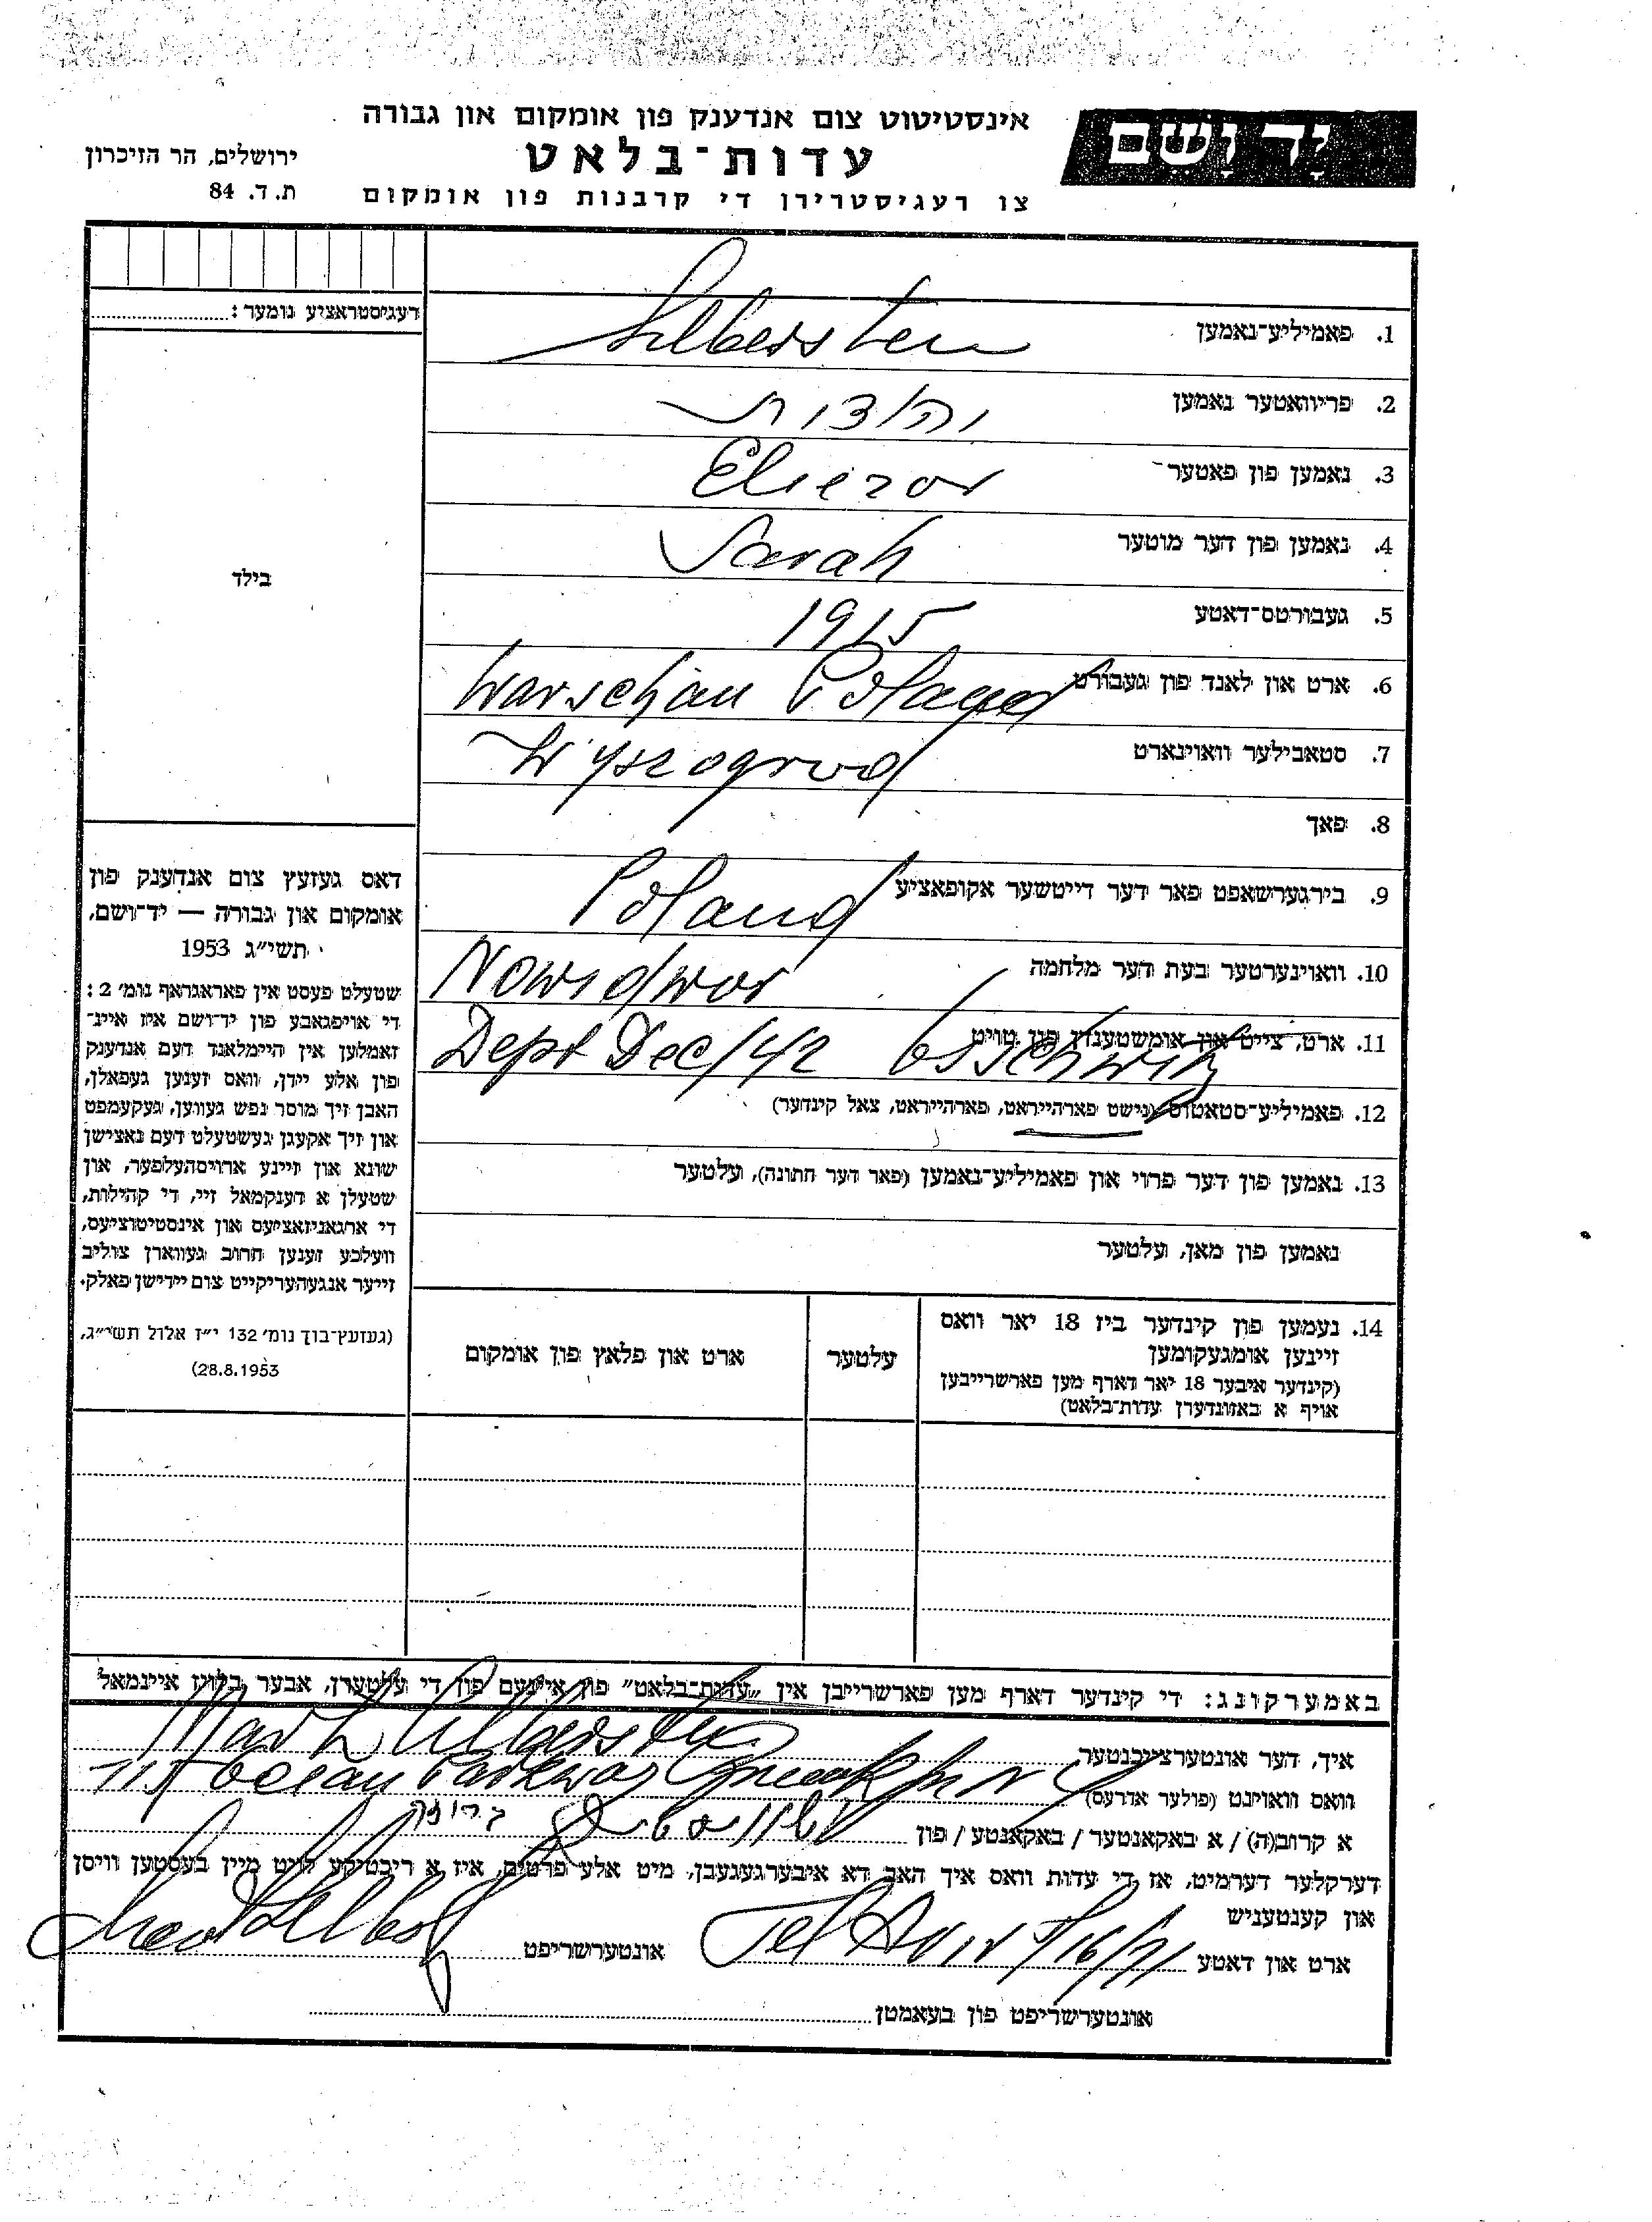 יד ושם
אינסטיטוט צום אנדענק פון אומקום און גבורה
עדות־בלאט
צו רעגיסטרירן די קרבנות פון אומקום
ירושלים, הר הזיכרון
ת. ד. 84
רעגיסטראציע נומער:
בילד
1. פאמיליע־נאמען Silberstein
2. פריוואטער נאמען
3. נאמען פון פאטער Eliezor
4. נאמען פון דער מוטער Sarah
5. געבורטס־דאטע 1915
6. ארט און לאנד פון געבורט Warschau Poland
7. סטאבילער וואוינארט Wyszogrod
8. פאך
9. בירגערשאפט פאר דער דייטשער אקופאציע Poland
10. וואוינערטער בעת דער מלחמה Nowidwor
11. ארט, צייט און אומשטענדן פון טויט Dept Dec/42
12. פאמיליע־סטאטוס (נישט פארהייראט, פארהייראט, צאל קינדער)
13. נאמען פון דער פרוי און פאמיליע־נאמען (פאר דער חתונה), עלטער
נאמען פון מאן, עלטער
14. נעמען פון קינדער ביז 18 יאר וואס
זיינען אומגעקומען
(קינדער איבער 18 יאר דארף מען פארשרייבן
אויף א באזונדערן עדות־בלאט)
עלטער
ארט און פלאץ פון אומקום
דאס געזעץ צום אנדענק פון
אומקום און גבורה — יד־ושם,
תשי״ג 1953
שטעלט פעסט אין פאראגראף נומ׳ 2:
די אויפגאבע פון יד־ושם איז איינ־
זאמלען אין היימלאנד דעם אנדענק
פון אלע יידן, וואס זענען געפאלן,
האבן זיך מוסר נפש געווען, געקעמפט
און זיך אקעגן געשטעלט דעם נאצישן
שונא און זיינע ארויסהעלפער, און
שטעלן א דענקמאל זיי, די קהילות,
די ארגאניזאציעס און אינסטיטוציעס,
וועלכע זענען חרוב געווארן צוליב
זייער אנגעהעריקייט צום יידישן פאלק.
(געזעץ־בוך נומ׳ 132 י״ז אלול תשי״ג,
28.8.1953)
באמערקונג: די קינדער דארף מען פארשרייבן אין „עדות־בלאט” פון איינעם פון די עלטערן, אבער בלויז איינמאל
איך, דער אונטערצייכנטער Mark Silberstein
וואס וואוינט (פולער אדרעס) 115 Ocean Parkway
א קרוב(ה) / א באקאנטער / באקאנטע / פון
דערקלער דערמיט, אז די עדות וואס איך האב דא איבערגעגעבן, מיט אלע פרטים, איז א ריכטיקע לויט מיין בעסטען וויסן
און קענטעניש
ארט און דאטע Tel Aviv 5/16/71 אונטערשריפט
אונטערשריפט פון בעאמטן